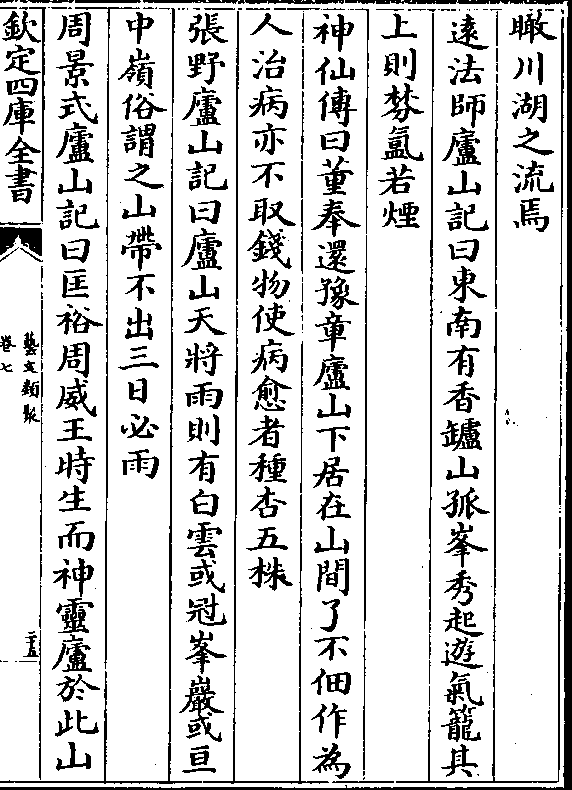 瞰川湖之流焉
遠法師廬山記曰東南有香鑪山孤峯秀起遊氣籠其
上則棼氳若煙
神仙傳曰董奉還豫章廬山下居在山間了不佃作為
人治病亦不取錢物使病愈者種杏五株
張野廬山記曰廬山天將雨則有白雲或冠峯巖或亘
中嶺俗謂之山帶不出三日必雨
周景式廬山記曰匡裕周威王時生而神靈廬於此山
欽定四庫全書
藝文類聚
卷七
二十五